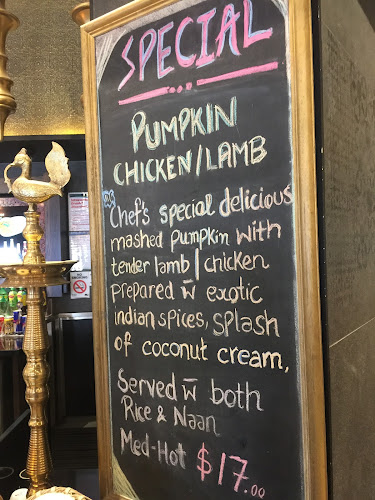 SPECIAL
PUMPKIN
CHICKEN/LAMB
Chef's special delicious
mashed pumpkin with
tender lamb / chicken
prepared w̄ exotic
indian spices, splash
of coconut cream,
Served w̄ both
Rice & Naan
Med-Hot $17.00